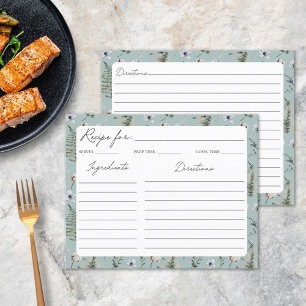 Directions
Recipe for:
SERVES: PREP TIME: COOK TIME:
Ingredients Directions